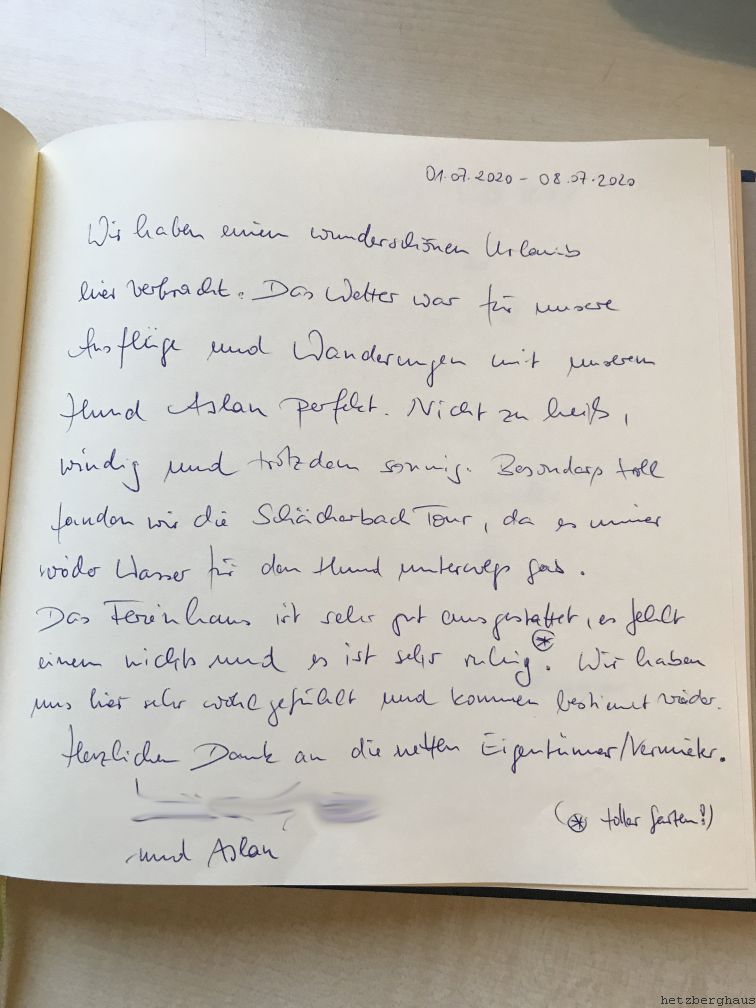 01.07.2020 - 08.07.2020
Wir haben einen wunderschönen Urlaub
hier verbracht. Das Wetter war für unsere
Ausflüge und Wanderungen mit unserem
Hund Aslan perfekt. Nicht zu heiß,
windig und trotzdem sonnig. Besonders toll
fanden wir die Schächerbach Tour, da es immer
wieder Wasser für den Hund unterwegs gab.
Das Ferienhaus ist sehr gut ausgestattet, es fehlt
einem nichts und es ist sehr ruhig. Wir haben
uns hier sehr wohl gefühlt und kommen bestimmt wieder.
Herzlichen Dank an die netten Eigentümer/Vermieter.
(* toller Garten!)
und Aslan
hetzberghaus